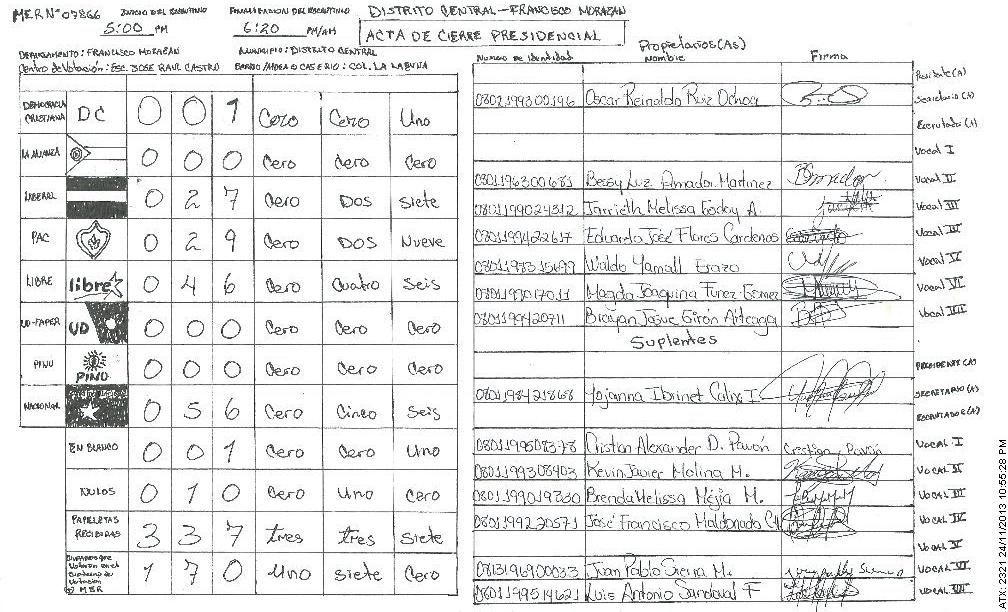 MER Nº 07866 INICIO DEL ESCRUTINIO FINALIZACION DEL ESCRUTINIO DISTRITO CENTRAL - FRANCISCO MORAZAN
5:00 PM 6:20 PM/AM ACTA DE CIERRE PRESIDENCIAL
DEPARTAMENTO: FRANCISCO MORAZAN MUNICIPIO: DISTRITO CENTRAL
Centro de Votación: ESC. JOSE RAUL CASTRO BARRIO/ALDEA O CASERIO: COL. LA LAGUNA
DEMOCRACIA CRISTIANA DC 0 0 1 Cero Cero Uno
LA ALIANZA 0 0 0 Cero Cero Cero
LIBERAL 0 2 7 Cero DOS Siete
PAC 0 2 9 Cero DOS Nueve
LIBRE libre 0 4 6 Cero Cuatro Seis
UD-FAPER UD 0 0 0 Cero Cero Cero
PINU PINU 0 0 0 Cero Cero Cero
NACIONAL 0 5 6 Cero Cinco Seis
EN BLANCO 0 0 1 Cero Cero Uno
NULOS 0 1 0 Cero Uno Cero
PAPELETAS RECIBIDAS 3 3 7 tres tres siete
1 7 0 Uno siete Cero
Propietarios (As)
Numero de Identidad Nombre Firma
Presidente (A)
0802199300196 Oscar Reinaldo Ruiz Ochoa Secretario (A)
Escrutador (A)
Vocal I
0801196300681 Bessy Luz Amador Martinez BAmador Vocal II
0801199024312 Jarrieth Melissa Godoy A. Vocal III
0801199422617 Eduardo José Flores Cardenas Vocal IV
0801198315699 Waldo Yamall Erazo Vocal V
0801199017011 Magda Joaquina Funez Gomez Vocal VI
0801199420711 Brayan Josue Girón Arteaga Vocal VII
Suplentes
PRESIDENTE (A)
0801198421868 Yojanna Ibrinet Calix I. SECRETARIO (A)
ESCRUTADOR (A)
0801199508378 Cristian Alexander D. Pavón Cristian Pavon VOCAL I
0801199308403 Kevin Javier Molina M. VOCAL II
Brenda Melissa Mejia M. VOCAL III
0801199220571 José Francisco Maldonado VOCAL IV
VOCAL V
0813196900033 Juan Pablo Sierra M. VOCAL VI
0801199514621 Luis Antonio Sandoval F VOCAL VII
24/11/2013 10:55:28 PM